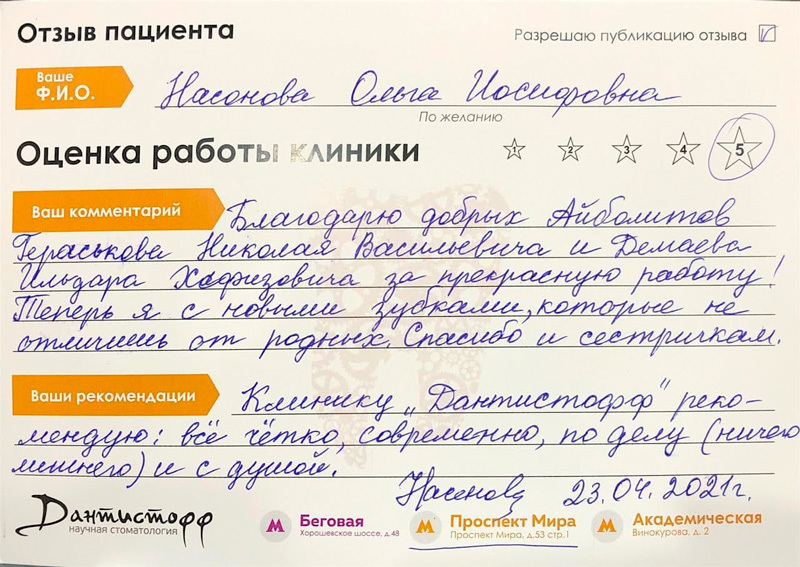 Отзыв пациента
Разрешаю публикацию отзыва
Ваше
Ф.И.О.
Насонова Ольга Иосифовна
По желанию
Оценка работы клиники
1 2 3 4 5
Ваш комментарий
Благодарю добрых Айболитов
Гераськова Николая Васильевича и Демаева
Ильдара Хафизовича за прекрасную работу!
Теперь я с новыми зубками, которые не
отличишь от родных. Спасибо и сестричкам.
Ваши рекомендации
Клинику „Дантистофф" реко-
мендую: всё чётко, современно, по делу (ничего
лишнего) и с душой.
Насонова 23.04.2021г.
Дантистофф
научная стоматология
М Беговая
Хорошевское шоссе, д.48
М Проспект Мира
Проспект Мира, д.53 стр.1
М Академическая
Винокурова, д. 2